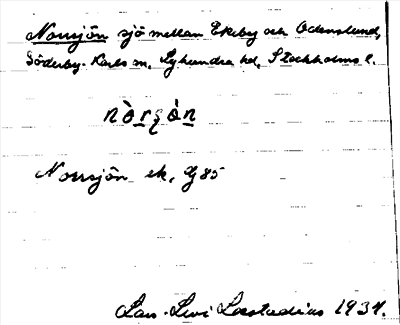 Norrsjön sjö mellan Ekeby och Odenslund,
Söderby-Karls sn, Lyhundra hd, Stockholms l.
Norrsjön ek. G 85
Lars-Levi Læstadius 1934.